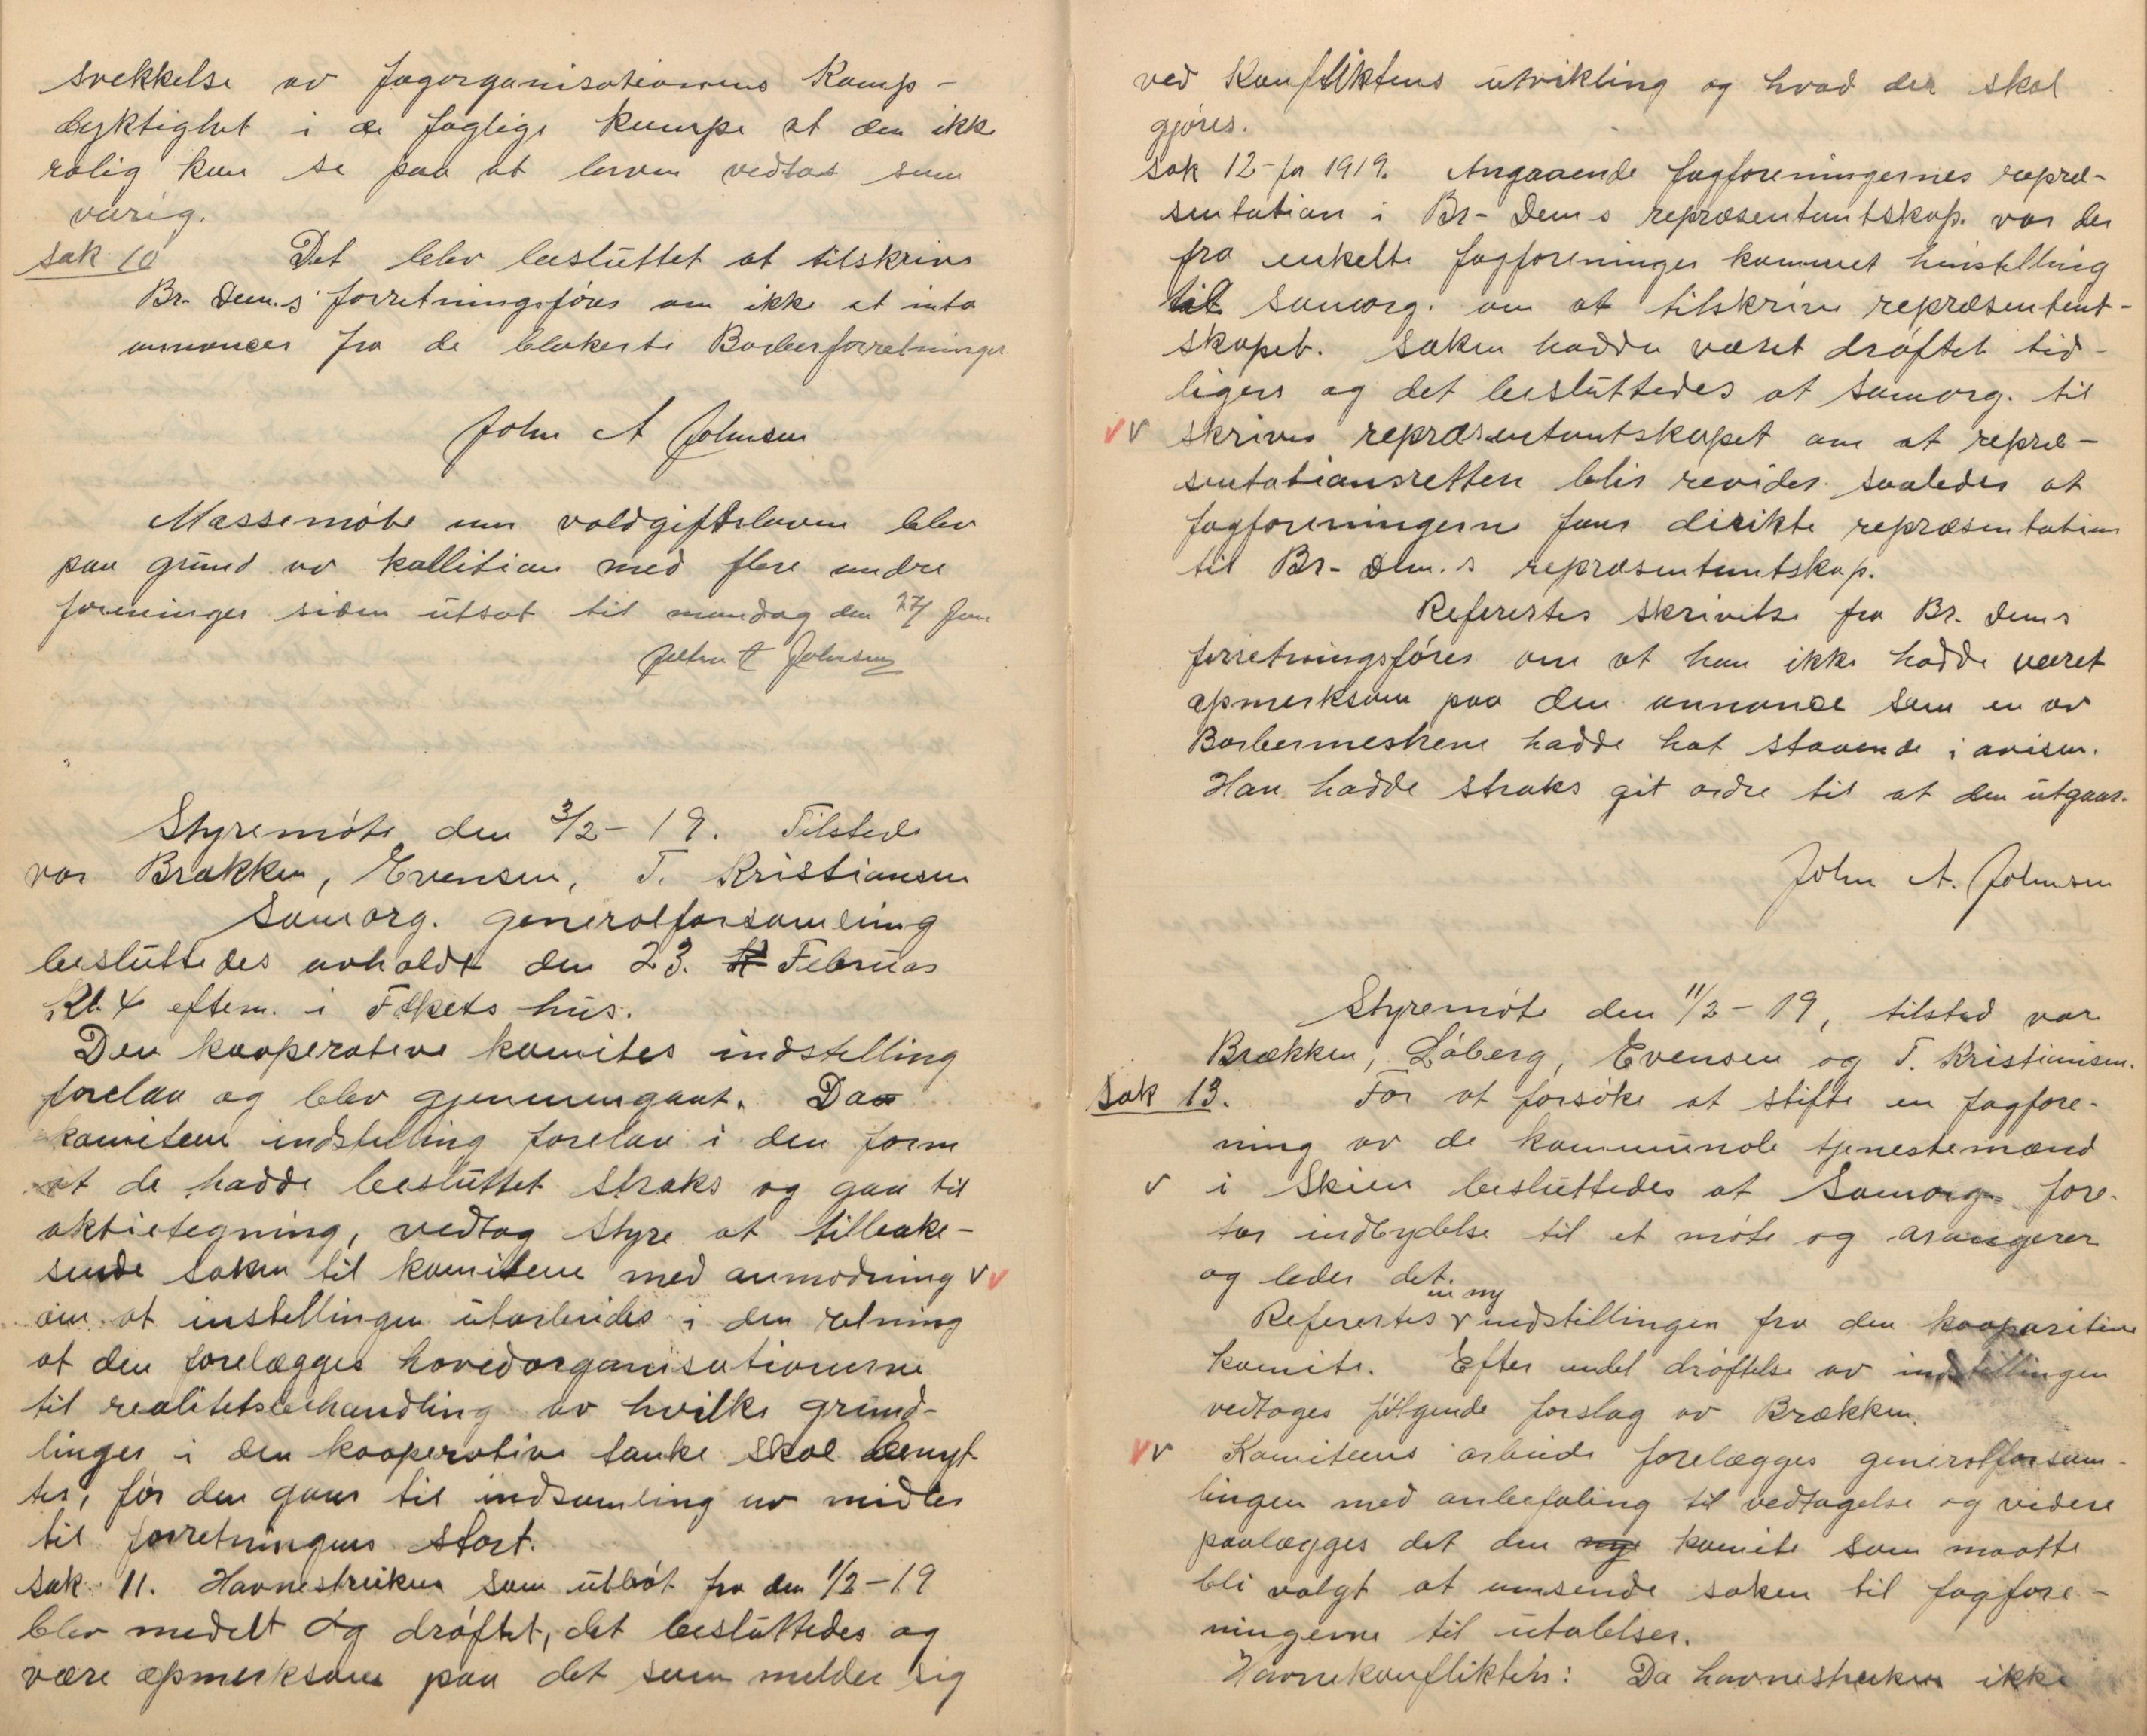 svekkelse av fagorganisationens Kamp-
dyktighet i de faglige kampe at den ikke
rolig kan se paa at loven vedtas som
varig.
sak 10 Det blev besluttet at tilskrive
Br. Dem.s forretningsfører om ikke at inta
annoncer fra de blokerte Barberforretninger
John A Johnsen
Massemøte om voldgiftsloven blev
paa grund av kollition med flere andre
foreninger siden utsat til mandag den 27/ Jan
John A Johnsen
Styremøte den 3/2-19. Tilstede
var Brækken, Evensen, T. Kristiansen
Samorg. generalforsamling
besluttedes avholdt den 23. Februar
Kl. 4 eftem. i Folkets hus.
Den kooperative komites indstelling
forelaa og blev gjennemgaat. Da
komiteen indstelling forelaa i den form
at de hadde besluttet straks og gaa til
aktietegning, vedtog styre at tilbake-
sende saken til komiteen med anmodning v v
om at instellingen utarbeides i den retning
at den forelægges hovedorganisationerne
til realitetsbehandling av hvilke grund-
linger i den kooperative tanke skal benyt
tes, før den gaar til indsamling av midler
til forretningens start.
sak 11. Havnestreiken som utbrøt fra den 1/2-19
blev medelt og drøftet, det besluttedes og
være opmerksom paa det som melder sig
ved Konfliktens utvikling og hvad der skal
gjøres.
sak 12- for 1919. Angaaende fagforeningernes repræ-
sentation i Br- Dem s repræsentantskap. var der
fra enkelte fagforeninger kommet hinstelling
til samorg. om at tilskrive repræsentent-
skapet. Saken hadde været drøftet tid-
ligere og det besluttedes at samorg. til
v v skriver repræsentantskapet om at repræ-
sentationsretten blir revider saaledes at
fagforeningern faar dirikte repræsentation
til Br- Dem.s repræsentantskap.
Referertes skrivelse fra Br. Dem s
forretningsfører om at han ikke hadde været
opmerksom paa den annonce som en av
Barbermestrene hadde hat staaende i avisen.
Han hadde straks git ordre til at den utgaar.
John A. Johnsen
Styremøte den 11/2-19, tilsted var
Brækken, Løberg, Evensen og T. Kristiansen.
Sak 13. For at forsøke at stifte en fagfore-
ning av de kommunale tjenestemænd
v i Skien besluttedes at Samorg. fore-
tar indbydelse til et møte og arangerer
og leder det.
en ny
Referertes v indstillingen fra den kooparitive
komite. Efter endel drøftelse av indstillingen
vedtoges følgende forslag av Brækken.
v v Komiteens arbeide forelægges generalforsam-
lingen med anbefaling til vedtagelse og videre
paalægges det den nye komite som maatte
bli valgt at umsende saken til fagfore-
ningerne til utalelser.
Havnekonflikten: Da havnestreiken ikke